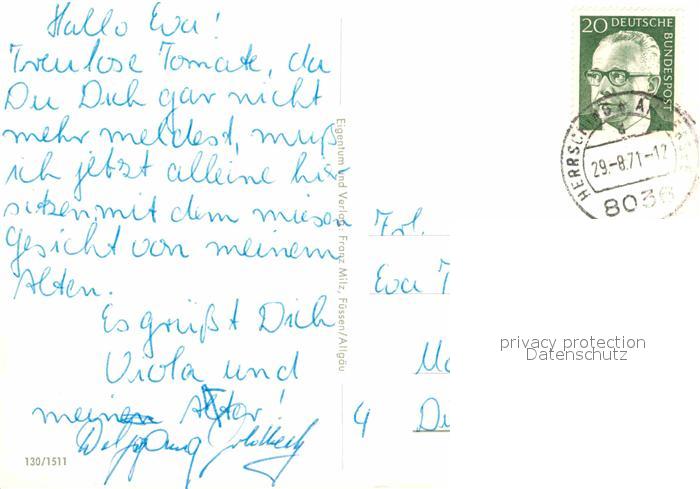 Hallo Eva!
Treulose Tomate, da
Du Dich gar nicht
mehr meldest, muß
ich jetzt alleine hier
sitzen mit dem miesen
Gesicht von meinem
Alten.
Es grüßt Dich
Viola und
meinen Alter!
Wolfgang
130/1511
Eigentum und Verlag: Franz Milz, Füssen/Allgäu
20 DEUTSCHE
BUNDESPOST
HERRSCHING A
29.-8.71-12
8036
Frl.
Eva T
4
privacy protection
Datenschutz